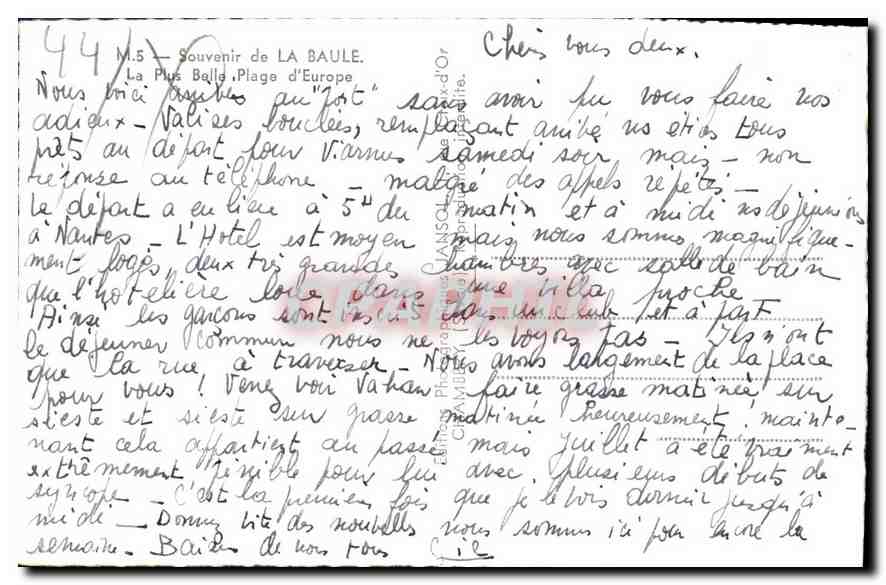 44
M.5 — Souvenir de LA BAULE.
La Plus Belle Plage d'Europe
Chers vous deux.
Nous voici arrivés au "port" sans avoir pu vous faire nos
adieux - Valises bouclées, remplaçant arrivé ns étions tous
prêts au départ pour Viarmes samedi soir mais - non
réponse au téléphone - malgré des appels répétés -
Le départ a eu lieu à 5H du matin et à midi ns déjeunions
à Nantes - L'Hotel est moyen mais nous sommes magnifique-
ment logés deux très grandes chambres avec salle de bain
que l'hotelière loue dans une villa proche
Ainsi les garçons sont inscrits dans un club et à part
le déjeuner commun nous ne les voyons pas - Ils n'ont
que la rue à traverser - Nous avons largement de la place
pour vous ! Venez voir Vahan faire grasse matinée sur
sieste et sieste sur grasse matinée heureusement ! mainte-
nant cela appartient au passé mais Juillet a été vraiment
extrêmement pénible pour lui avec plusieurs débuts de
syncope - C'est la première fois que je le vois dormir jusqu'à
midi - Donnez vite des nouvelles nous sommes ici pour encore la
semaine - Baisers de nous tous
Editions Photographiques JANSOL
CHAMBERY
Reproduction interdite.